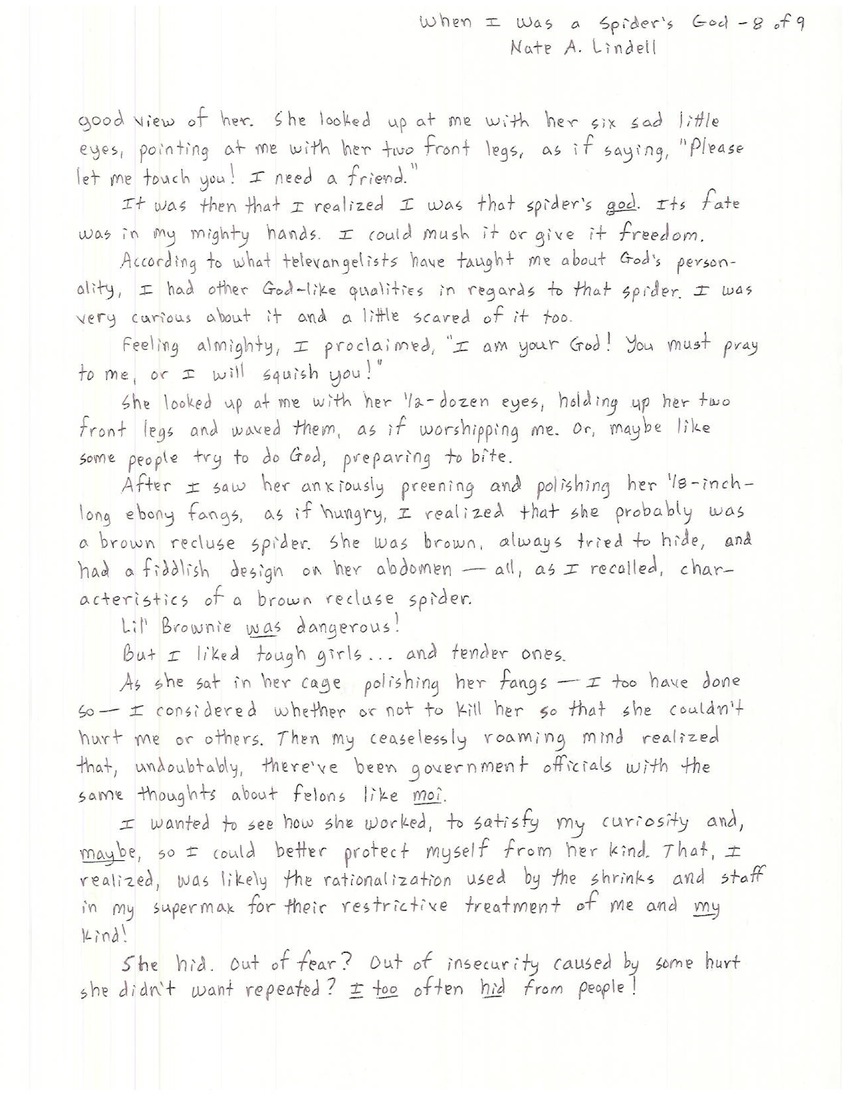 When I Was a Spider's God - 8 of 9
Nate A. Lindell
good view of her. She looked up at me with her six sad little
eyes, pointing at me with her two front legs, as if saying, "Please
let me touch you! I need a friend."
It was then that I realized I was that spider's god. Its fate
was in my mighty hands. I could mush it or give it freedom.
According to what televangelists have taught me about God's person-
ality, I had other God-like qualities in regards to that spider. I was
very curious about it and a little scared of it too.
Feeling almighty, I proclaimed, "I am your God! You must pray
to me, or I will squish you!"
She looked up at me with her 1/2-dozen eyes, holding up her two
front legs and waved them, as if worshipping me. Or, maybe like
some people try to do God, preparing to bite.
After I saw her anxiously preening and polishing her 1/8-inch-
long ebony fangs, as if hungry, I realized that she probably was
a brown recluse spider. She was brown, always tried to hide, and
had a fiddlish design on her abdomen — all, as I recalled, char-
acteristics of a brown recluse spider.
Lil' Brownie was dangerous!
But I liked tough girls... and tender ones.
As she sat in her cage polishing her fangs — I too have done
so — I considered whether or not to kill her so that she couldn't
hurt me or others. Then my ceaselessly roaming mind realized
that, undoubtably, there've been government officials with the
same thoughts about felons like moi.
I wanted to see how she worked, to satisfy my curiosity and,
maybe, so I could better protect myself from her kind. That, I
realized, was likely the rationalization used by the shrinks and staff
in my supermax for their restrictive treatment of me and my
kind!
She hid. Out of fear? Out of insecurity caused by some hurt
she didn't want repeated? I too often hid from people!